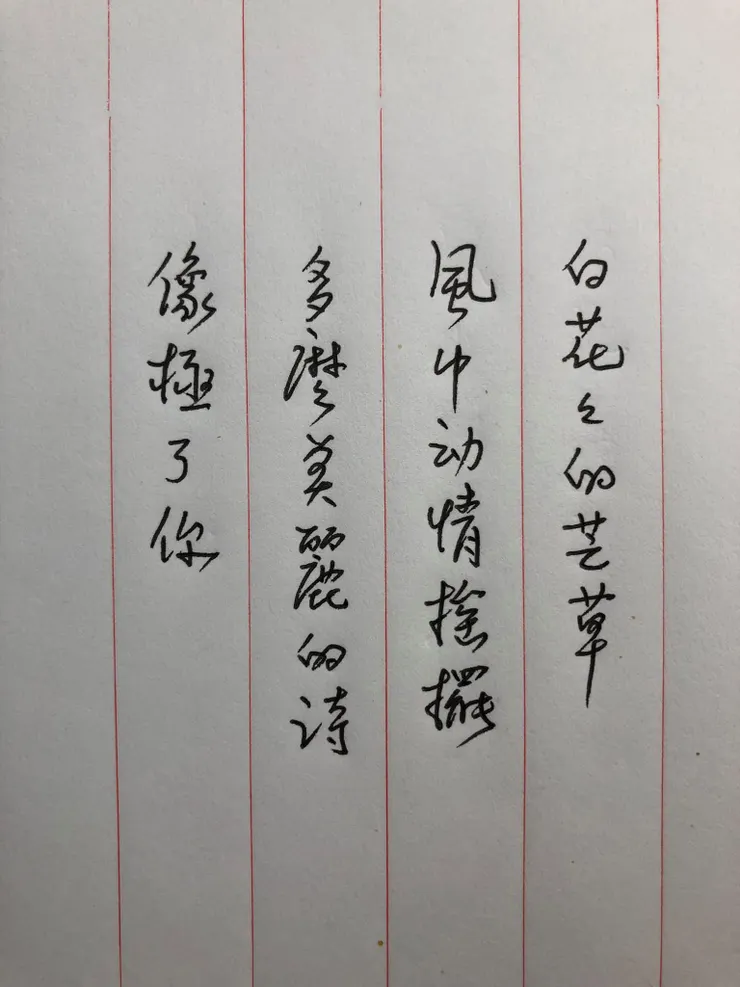 白花々的芒草
風中动情摇擺
多麼美麗的詩
像極了你